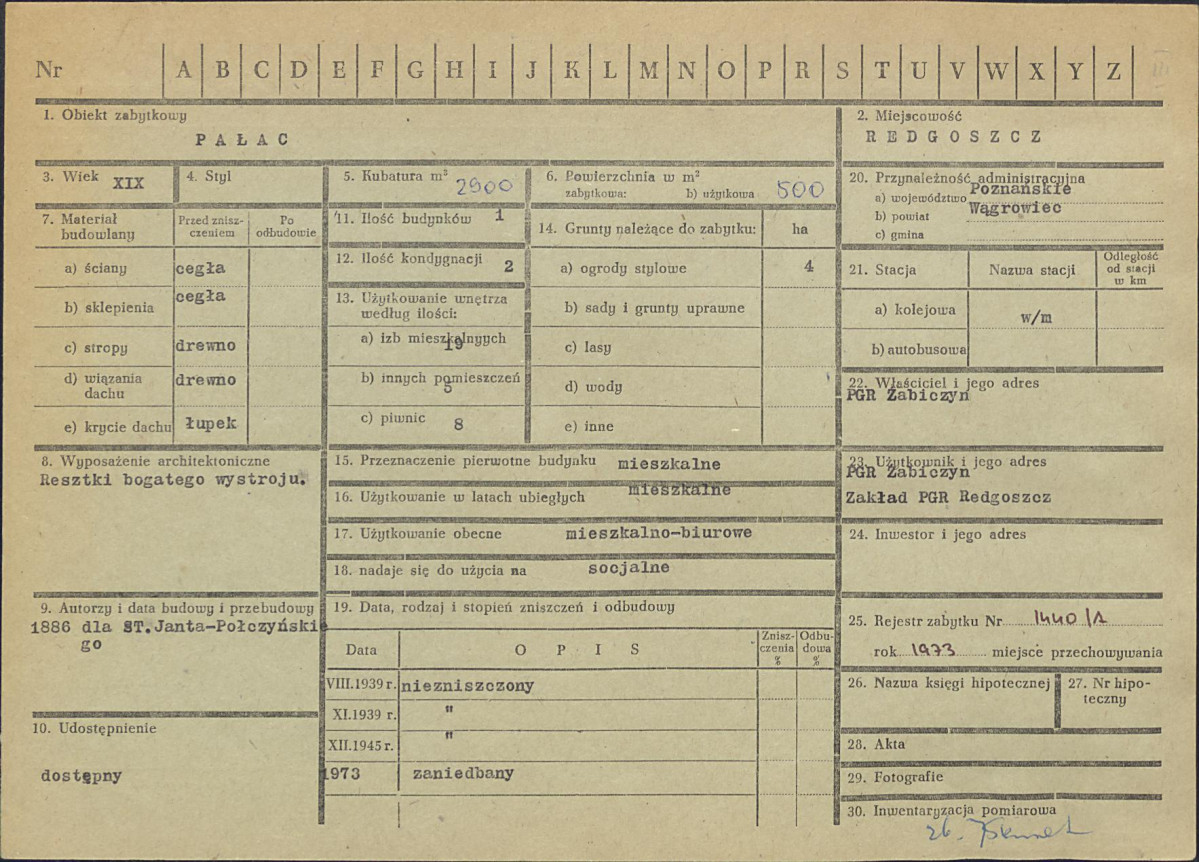 Nr A B C D E F G H I J K L M N O P R S T U V W X Y Z
1. Obiekt zabytkowy
PAŁAC
2. Miejscowość
REDGOSZCZ
3. Wiek XIX
4. Styl
5. Kubatura m³ 2900
6. Powierzchnia w m²
zabytkowa: b) użytkowa 500
20. Przynależność administracyjna
a) województwo Poznańskie
b) powiat Wągrowiec
c) gmina
7. Materiał budowlany
Przed zniszczeniem
Po odbudowie
a) ściany cegła
b) sklepienia cegła
c) stropy drewno
d) wiązania dachu drewno
e) krycie dachu łupek
11. Ilość budynków 1
12. Ilość kondygnacji 2
13. Użytkowanie wnętrza
według ilości:
a) izb mieszkalnych 19
b) innych pomieszczeń 5
c) piwnic 8
14. Grunty należące do zabytku: ha
a) ogrody stylowe 4
b) sady i grunty uprawne
c) lasy
d) wody
e) inne
21. Stacja
Nazwa stacji
Odległość
od stacji
w km
a) kolejowa w/m
b) autobusowa
22. Właściciel i jego adres
PGR Żabiczyn
8. Wyposażenie architektoniczne
Resztki bogatego wystroju.
15. Przeznaczenie pierwotne budynku mieszkalne
16. Użytkowanie w latach ubiegłych mieszkalne
17. Użytkowanie obecne mieszkalno-biurowe
18. nadaje się do użycia na socjalne
23. Użytkownik i jego adres
PGR Żabiczyn
Zakład PGR Redgoszcz
24. Inwestor i jego adres
9. Autorzy i data budowy i przebudowy
1886 dla ST.Janta-Połczyński
go
10. Udostępnienie
dostępny
19. Data, rodzaj i stopień zniszczeń i odbudowy
Data
OPIS
Znisz-
czenia
%
Odbu-
dowa
%
VIII.1939 r. niezniszczony
XI.1939 r. "
XII.1945 r. "
1973 zaniedbany
25. Rejestr zabytku Nr 1440/A
rok 1973 miejsce przechowywania
26. Nazwa księgi hipotecznej
27. Nr hipo-
teczny
28. Akta
29. Fotografie
30. Inwentaryzacja pomiarowa